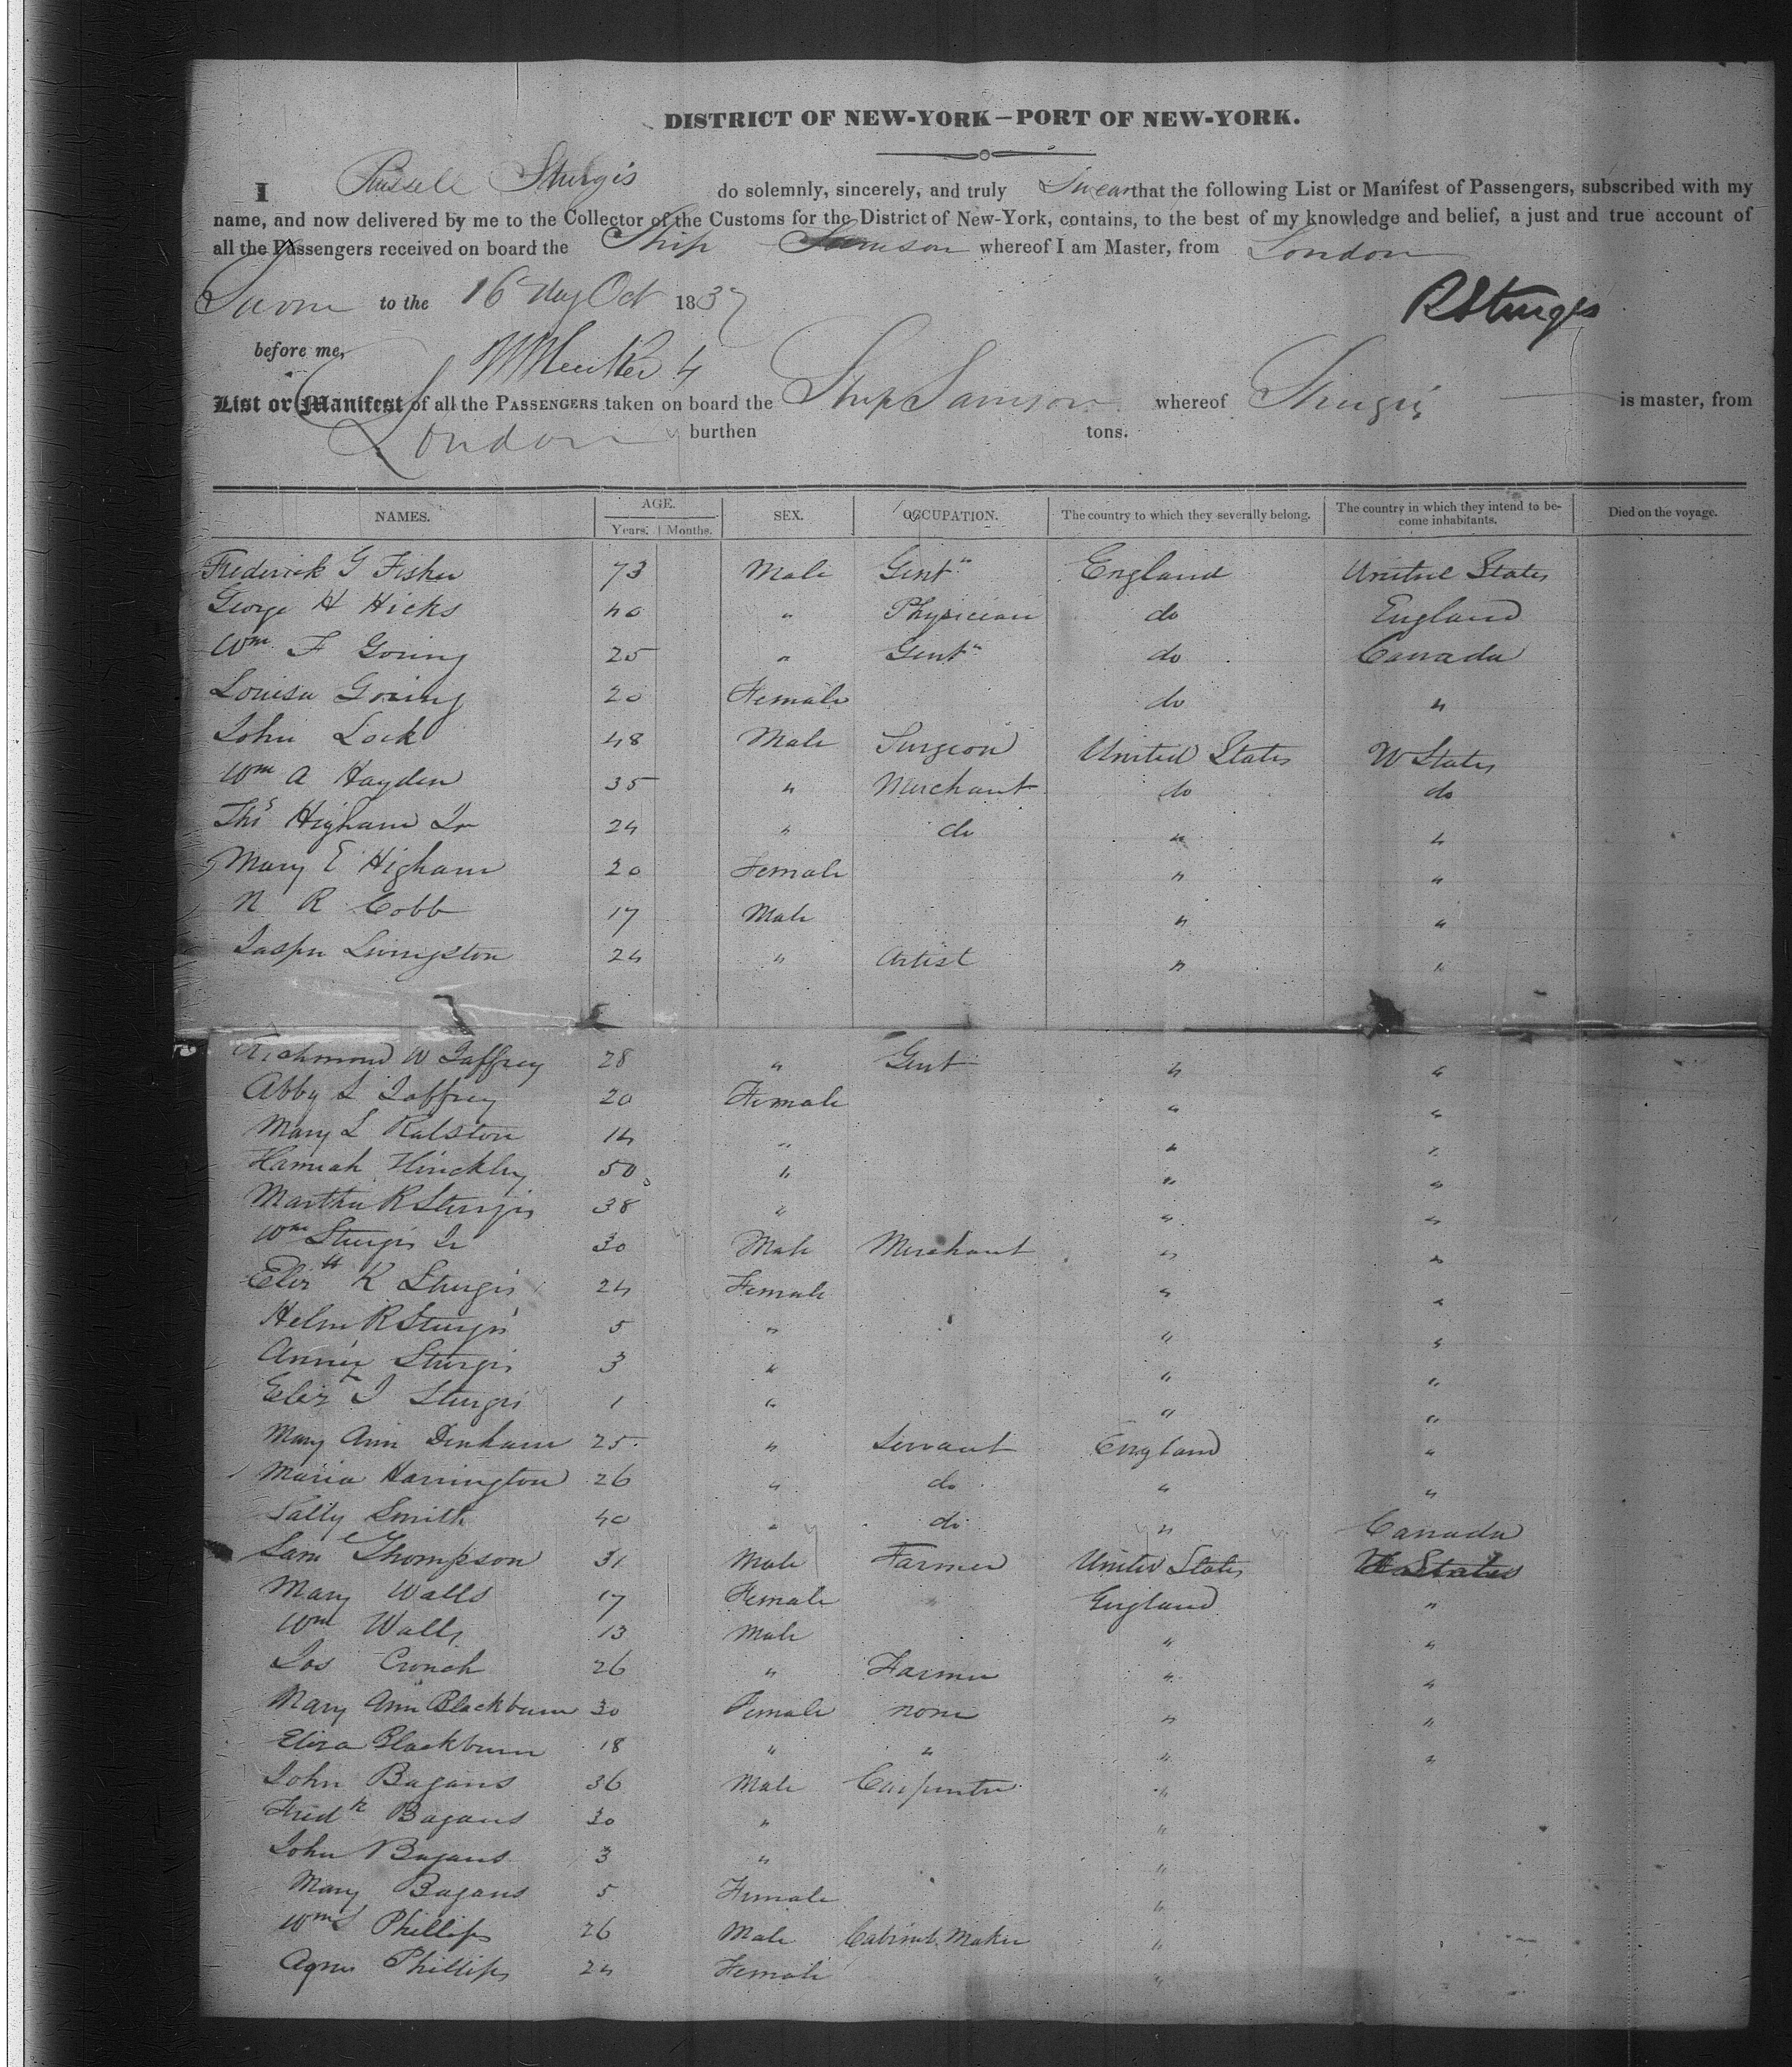 DISTRICT OF NEW-YORK—PORT OF NEW-YORK.
I Russell Sturgis do solemnly, sincerely, and truly Swear that the following List or Manifest of Passengers, subscribed with my
name, and now delivered by me to the Collector of the Customs for the District of New-York, contains, to the best of my knowledge and belief, a just and true account of
all the Passengers received on board the Ship Samson whereof I am Master, from London
Sworn to the 16 day Oct 1837
R Sturges
before me,
List or Manifest of all the PASSENGERS taken on board the Ship Samson whereof Sturgis is master, from
London burthen tons.
NAMES. AGE. SEX. OCCUPATION. The country to which they severally belong. The country in which they intend to become inhabitants. Died on the voyage.
Years. Months.
Frederick G Fisher 73 Male Gentn England United States
George H Hicks 40 " Physician do England
Wm F Goring 25 " Gentn do Canada
Louisa Goring 20 Female do "
John Lock 48 Male Surgeon United States U States
Wm A Hayden 35 " Merchant do do
Ths Higham Jr 24 " do " "
Mary E Higham 20 Female " "
N R Cobb 17 Male " "
Jasper Livingston 24 " Artist " "
Richmond W Jaffrey 28 " Gent " "
Abby L Jaffrey 20 Female " "
Mary L Ralston 14 " " "
Hannah Hinckley 50 " " "
Martha R Sturgis 38 " " "
Wm Sturgis Jr 30 Male Merchant " "
Elizth K Sturgis 24 Female " "
Helen R Sturgis 5 " " "
Annie Sturgis 3 " " "
Eliz J Sturgis 1 " " "
Mary Ann Denham 25 " Servant England "
Maria Harrington 26 " do " "
Sally Smith 40 " do " Canada
Saml Thompson 31 Male Farmer United States U States
Mary Walls 17 Female " England "
Wm Walls 13 Male " "
Jos Crouch 26 " Farmer " "
Mary Ann Blackburn 30 Female none " "
Eliza Blackburn 18 " " " "
John Bagans 36 Male Carpenter "
Fredk Bagans 30 " "
John Bagans 3 " "
Mary Bagans 5 Female "
Wm S Phillips 26 Male Cabinet Maker "
Agnes Phillips 24 Female "